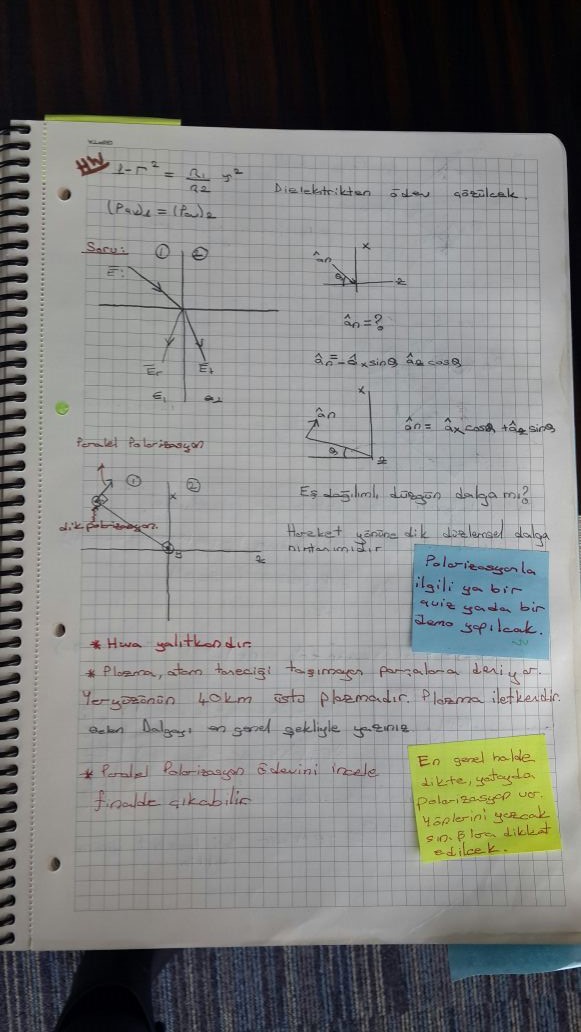 HW 1-Γ² = n₁/n₂ τ² Dielektrikten ödev çözülcek.
(Pav)₁ = (Pav)₂
Soru: ① ②
Ei
Er Et
x
ân
θ z
ân = ?
ân = -âx sinθ âz cosθ
x
ân
ân = âx cosθ + âz sinθ
θ z
Paralel Polarizasyon
① ②
x
dik polarizasyon.
y z
Eş dağılımlı düzgün dalga mı?
Hareket yönüne dik düzlemsel dalga
Polarizasyonla
ilgili ya bir
quiz yada bir
demo yapılcak.
* Hava yalıtkandır.
* Plazma, atom taneciği taşımayan parçalara deniyor.
Yeryüzünün 40km üstü plazmadır. Plazma iletkendir.
Dalgayı en genel şekliyle yazınız
* Paralel Polarizasyon ödevini incele
finalde çıkabilir
En genel halde
dikte, yatayda
polarizasyon var.
Yönlerini yazcak
dikkat
edilcek.